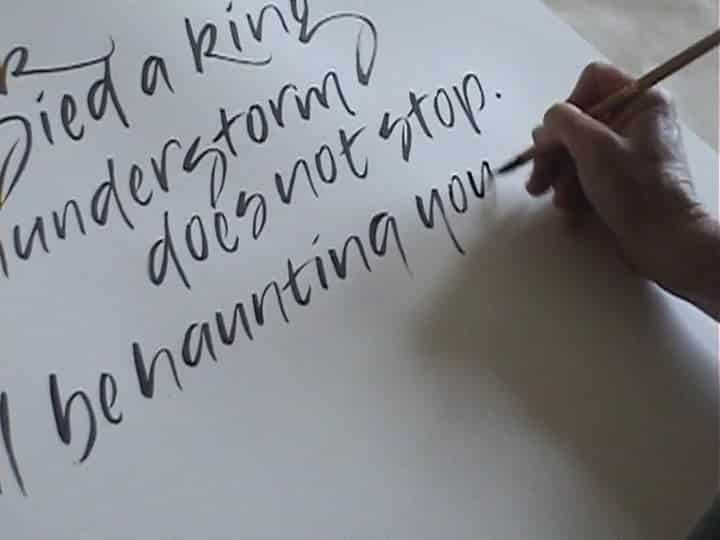 Died a king
understorm
does not stop.
l be haunting you